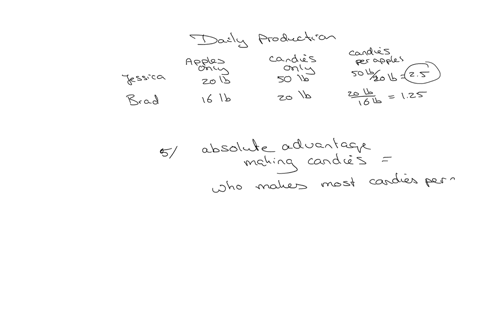 Daily Production
Apples only candies only candies per apples
Jessica 20 lb 50 lb 50 lb/20 lb = 2.5
Brad 16 lb 20 lb 20 lb/16 lb = 1.25
5/ absolute advantage
making candies =
who makes most candies per